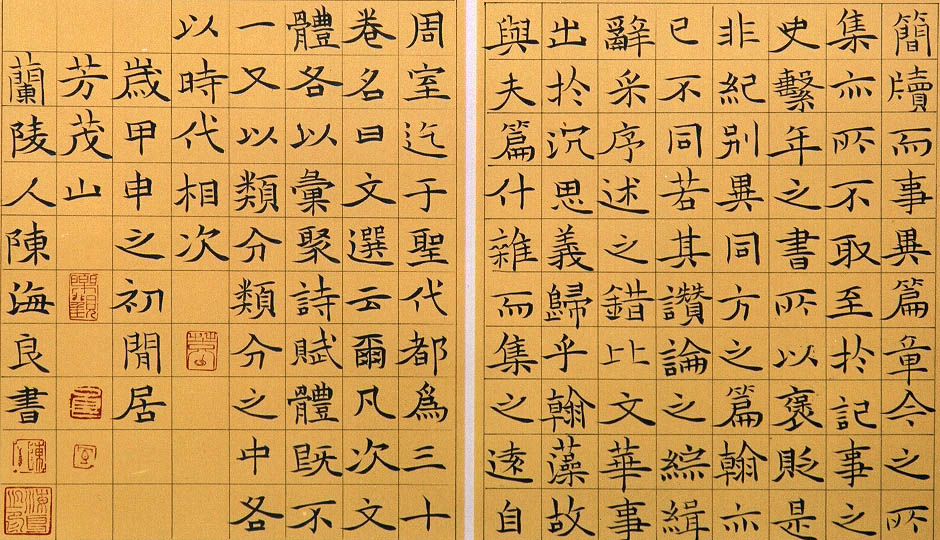 簡牘而事異篇章今之所
集亦所不取至於記事之
史繫年之書所以褒貶是
非紀別異同方之篇翰亦
已不同若其讚論之綜緝
辭采序述之錯比文華事
出於沉思義歸乎翰藻故
與夫篇什雜而集之遠自
周室迄于聖代都爲三十
卷名曰文選云爾凡次文
體各以彙聚詩賦體既不
一又以類分類分之中各
以時代相次
歲甲申之初閒居
芳茂山
蘭陵人陳海良書